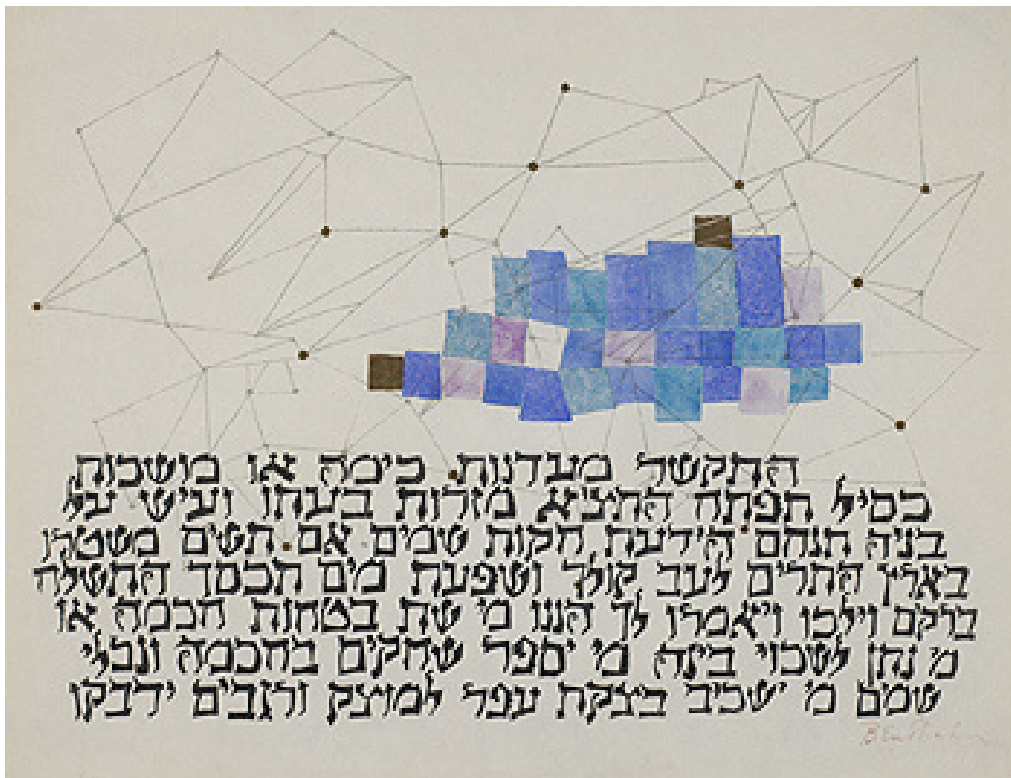 התקשר מעדנות כימה או מושכות
כסיל תפתח התציא מזרות בעתו ועיש על
בניה תנחם הידעת חקות שמים אם תשים משטרו
בארץ התרים לעב קולך ושפעת מים תכסך התשלח
ברקם וילכו ויאמרו לך הננו מי שת בטחות חכמה או
מי נתן לשכוי בינה מי יספר שחקים בחכמה ונבלי
שמם מי ישכיב בצקת עפר למוצק ורגבים ידבקו
Ben Shahn